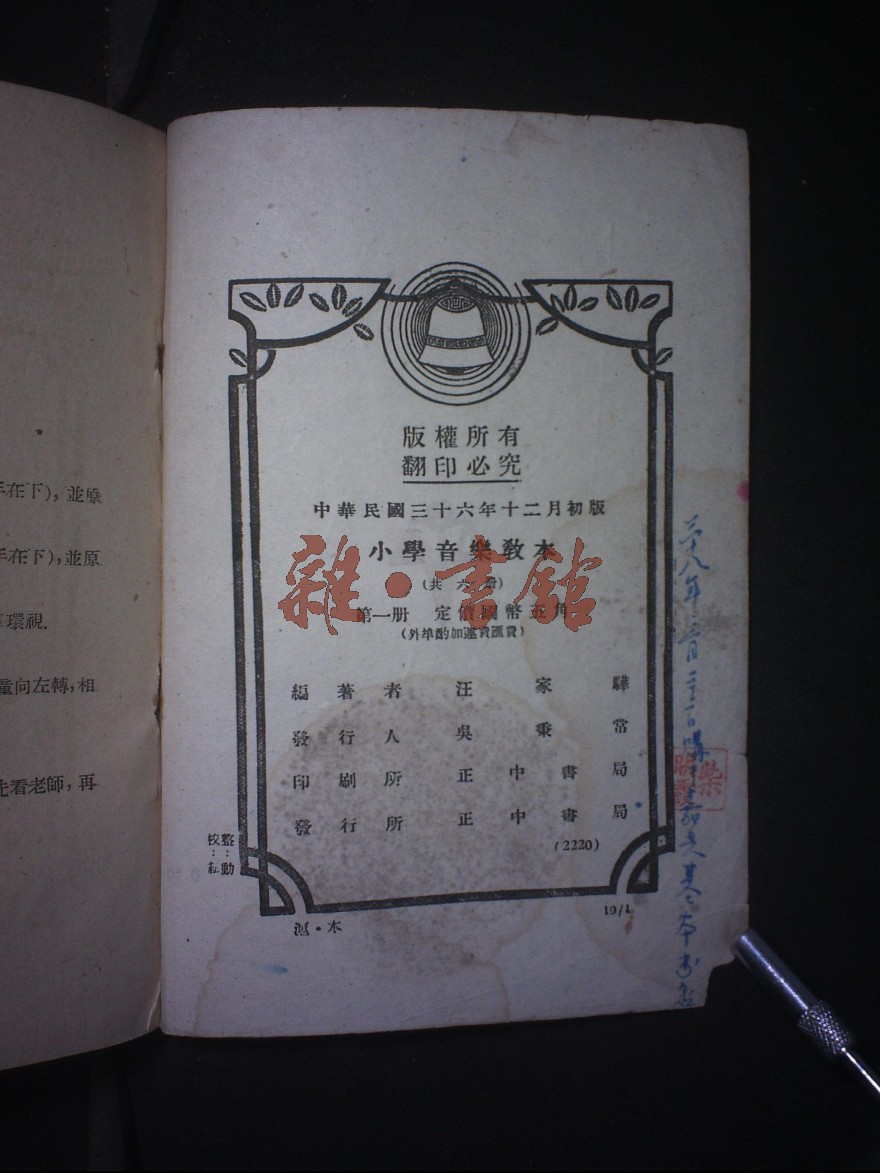 版權所有
翻印必究
中華民國三十六年十二月初版
小學音樂教本
(共六册)
第一册 定價國幣五角
(外埠酌加運費匯費)
編著者 汪家驊
發行人 吳秉常
印刷所 正中書局
發行所 正中書局
(2220)
校整
::
動
滬·本
10/1
雜·書館
手在下),並
手在下),並原
環視.
量向左轉,相
先看老師,再
三十八年二月二十一日購
柴